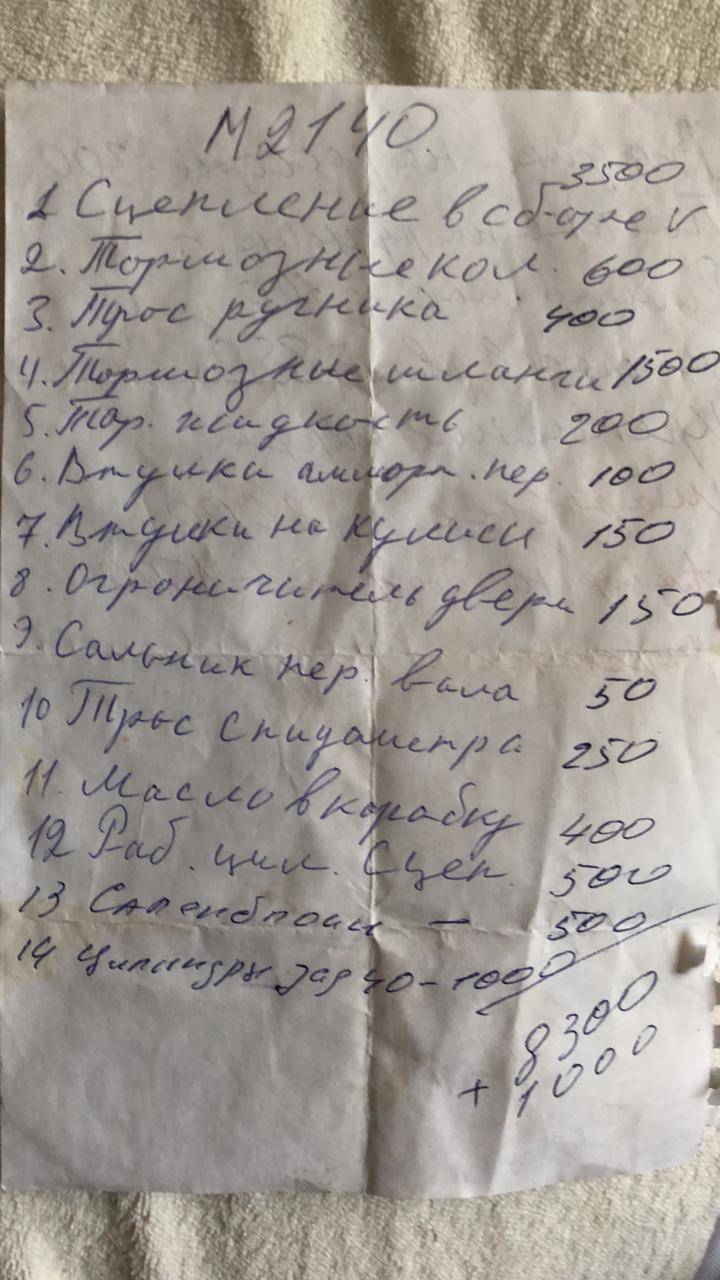 М2140.
3500
1 Сцепление в сборе V
2. Тормозные кол. 600
3. Трос ручника 400
4. Тормозные шланги 1500
5. Тор. жидкость 200
6. Втулки амморт. пер. 100
7. Втулки на кулисы 150
8. Ограничитель двери 150
9. Сальник пер. вала 50
10 Трос спидометра 250
11. Масло в коробку 400
12 Раб. цил. Сцеп. 500
13 Саленблоки - 500
14 Цилиндры зад 40 - 1000
8300
+ 1000